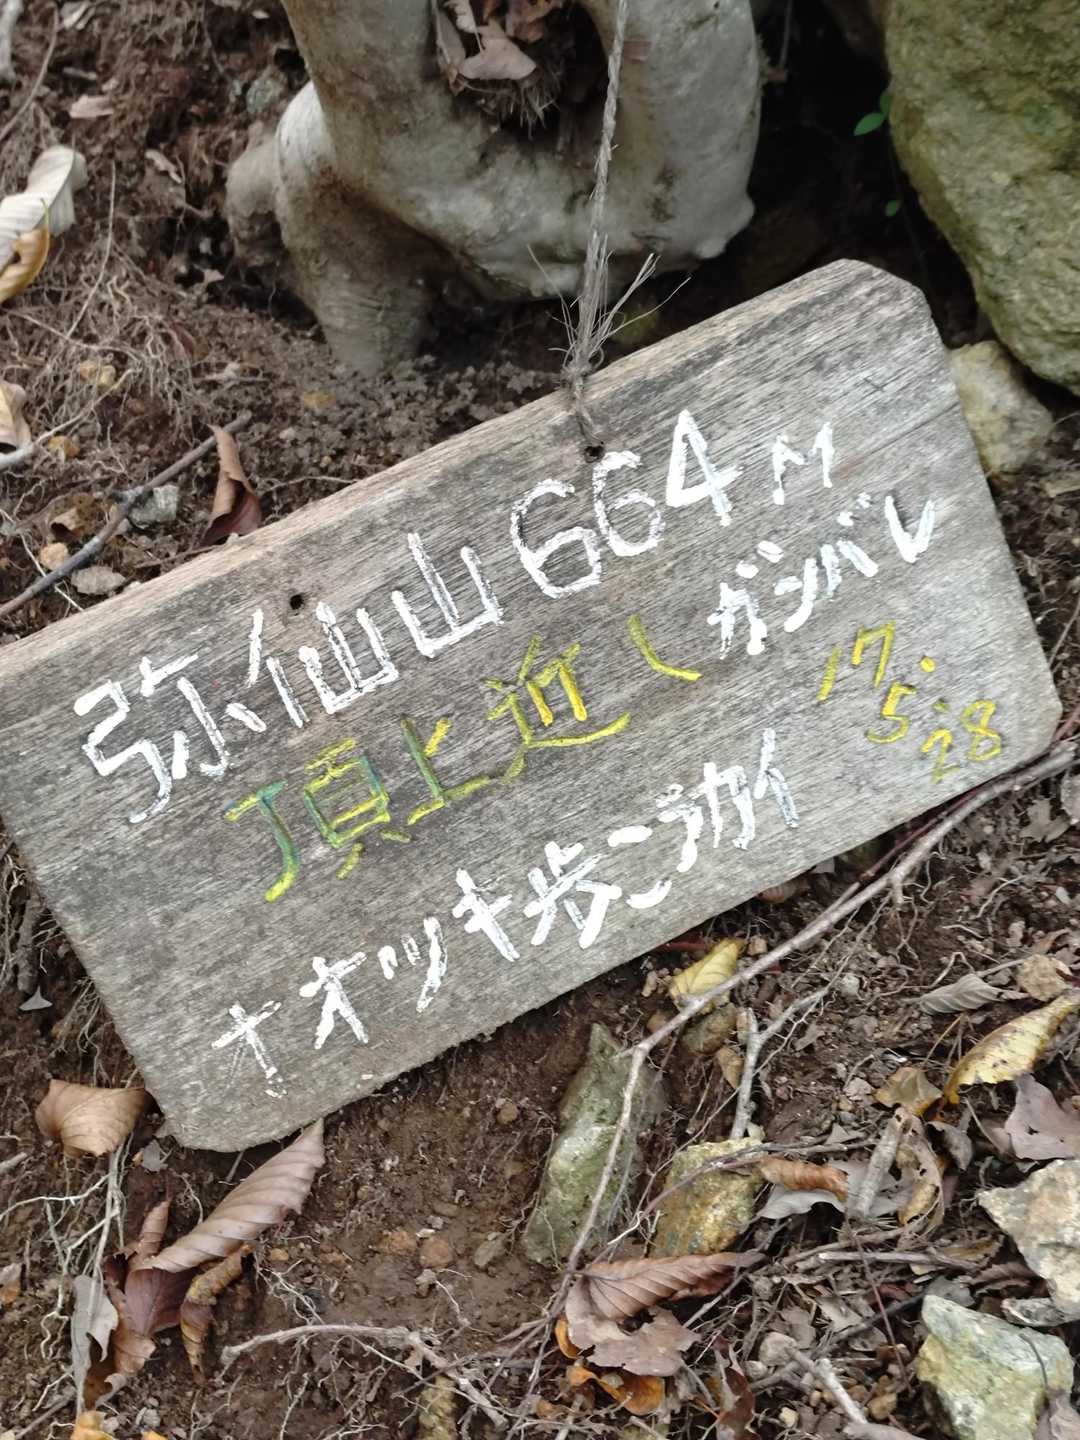 弥仙山664M
ガンバレ
頂上近し
17.5.28
オオツキ歩こう会